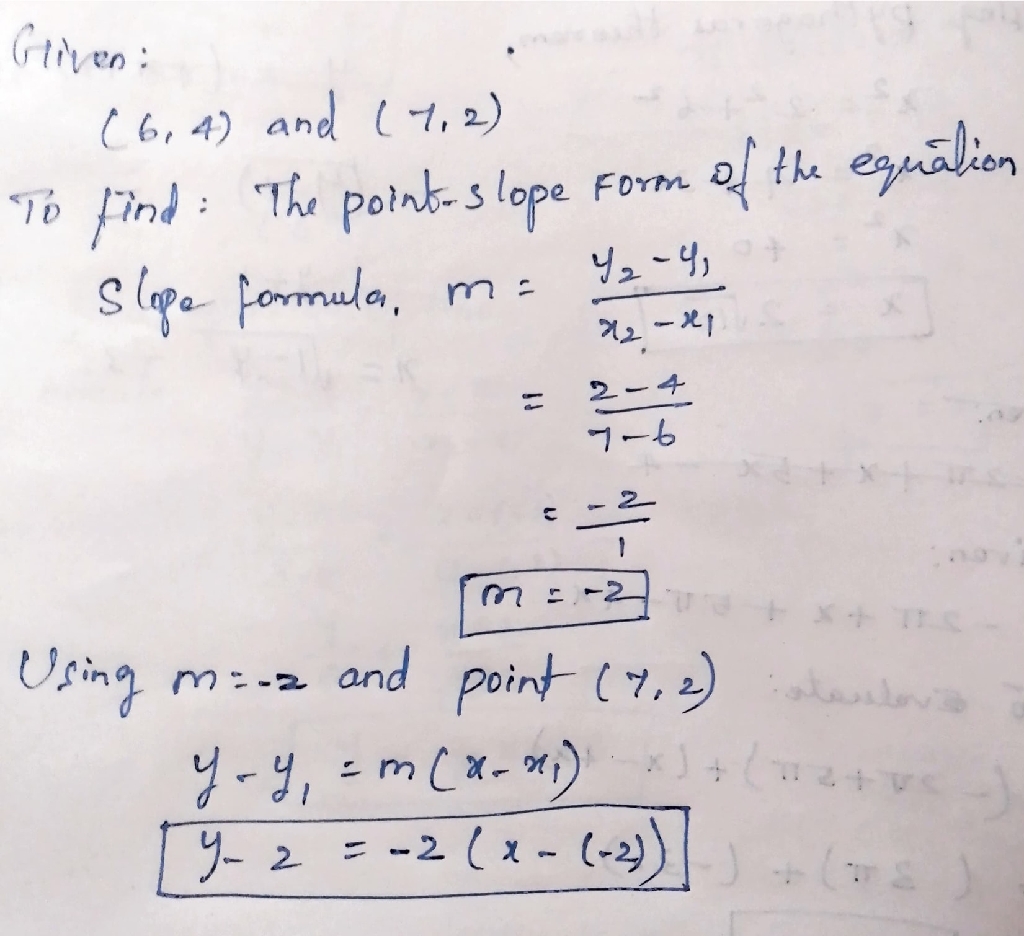 Given:
(6, 4) and (7, 2)
To find: The point-slope form of the equation
Slope formula, m = y₂ - y₁ / x₂ - x₁
= 2 - 4 / 7 - 6
= -2 / 1
m = -2
Using m = -2 and point (7, 2)
y - y₁ = m(x - x₁)
y - 2 = -2(x - (-2))